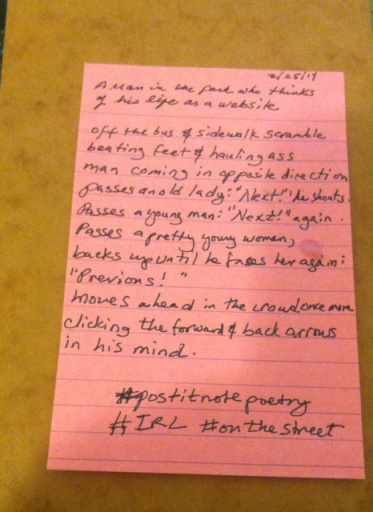 2/25/14
A Man in the park who thinks
of his life as a website
off the bus & sidewalk scramble
beating feet & hauling ass
man coming in opposite direction
passes an old lady: "Next!" he shouts.
Passes a young man: "Next!" again.
Passes a pretty young woman,
backs up until he faces her again:
"Previous!"
moves ahead in the crowd once more
clicking the forward & back arrows
in his mind.
#postitnotepoetry
#IRL #onthestreet